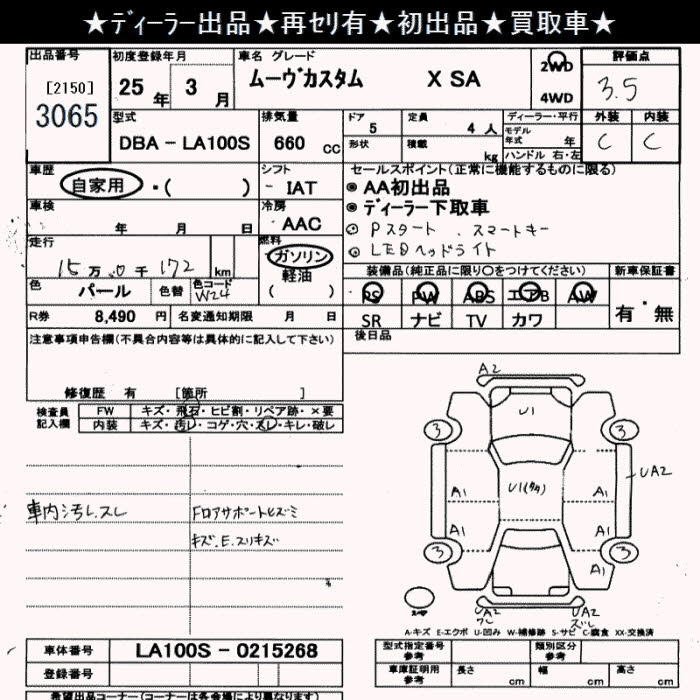 ★ディーラー出品★再セリ有★初出品★買取車★
出品番号
[2150]
3065
初度登録年月
25年 3月
車名 グレード
ムーヴカスタム X SA
2WD
4WD
評価点
3.5
型式
DBA - LA100S
排気量
660 cc
ドア
5
定員
4 人
形状
積載
kg
ディーラー・平行
モデル年式 年
ハンドル 右・左
外装
C
内装
C
車歴
自家用 ・( )
シフト
- IAT
セールスポイント(正常に機能するものに限る)
◉ AA初出品
◉ ディーラー下取車
◎ Pスタート . スマートキー
◎ LEDヘッドライト
車検
年 月 日
冷房
AAC
走行
15万 0千 172 km
燃料
ガソリン
軽油
( )
色
パール
色替
色コード
W24
装備品(純正品に限り○をつけてください)
PS PW ABS エアB AW
SR ナビ TV カワ
新車保証書
有・無
R券 8,490 円
名変通知期限 月 日
後日品
注意事項申告欄(不具合内容等は具体的に記入して下さい)
修復歴 有 [箇所 ]
検査員
記入欄
FW
キズ・飛石・ヒビ割・リペア跡・×要
内装
キズ・汚レ・コゲ・穴・スレ・キレ・破レ
車内汚レスレ
Fロアサポートヒズミ
キズ.E.スリキズ
A2
U1
3
3
UA2
U1(多)
A1
A1
A1
A1
A1
3
3
UA2
UA2
ズレ
A-キズ E-エクボ U-凹み W-補修跡 S-サビ C-腐食 XX-交換済
車体番号
LA100S - 0215268
登録番号
型式指定番号
参考
類別区分
参考
車庫証明用
参考
長さ cm
幅 cm
高さ cm
希望出品コーナー(コーナーは各会場により異なります)